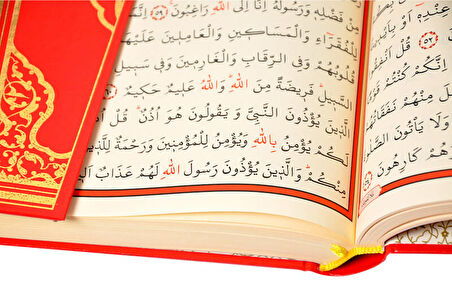 عِنْدِهٖٓ اَوْ
﴿٥٢﴾ قُلْ اَنْفِقُ
اِنَّكُمْ كُنْتُمْ قَوْ
مِنْهُمْ نَفَقَاتُ
وَلَا يَأْتُونَ الصَّلٰو
هُمْ كَارِهُونَ
مِنْ فَضْلِهٖ وَرَسُولُهُ اِنَّٓا اِلَى اللّٰهِ رَاغِبُونَ ﴿٥٩﴾ اِنَّمَا
لِلْفُقَرَٓاءِ وَالْمَسَاكٖينِ وَالْعَامِلٖينَ عَلَيْهَا
قُلُوبُهُمْ وَفِي الرِّقَابِ وَالْغَارِمٖينَ وَفٖي سَبٖيلِ
السَّبٖيلِ فَرٖيضَةً مِنَ اللّٰهِ وَاللّٰهُ عَلٖيمٌ حَكٖيمٌ ﴿٦٠﴾
الَّذٖينَ يُؤْذُونَ النَّبِيَّ وَيَقُولُونَ هُوَ اُذُنٌ قُلْ اُذُ
لَكُمْ يُؤْمِنُ بِاللّٰهِ وَيُؤْمِنُ لِلْمُؤْمِنٖينَ وَرَحْمَةٌ لِلَّذٖينَ
مِنْكُمْ وَالَّذٖينَ يُؤْذُونَ رَسُولَ اللّٰهِ لَهُمْ عَذَابٌ اَلٖي